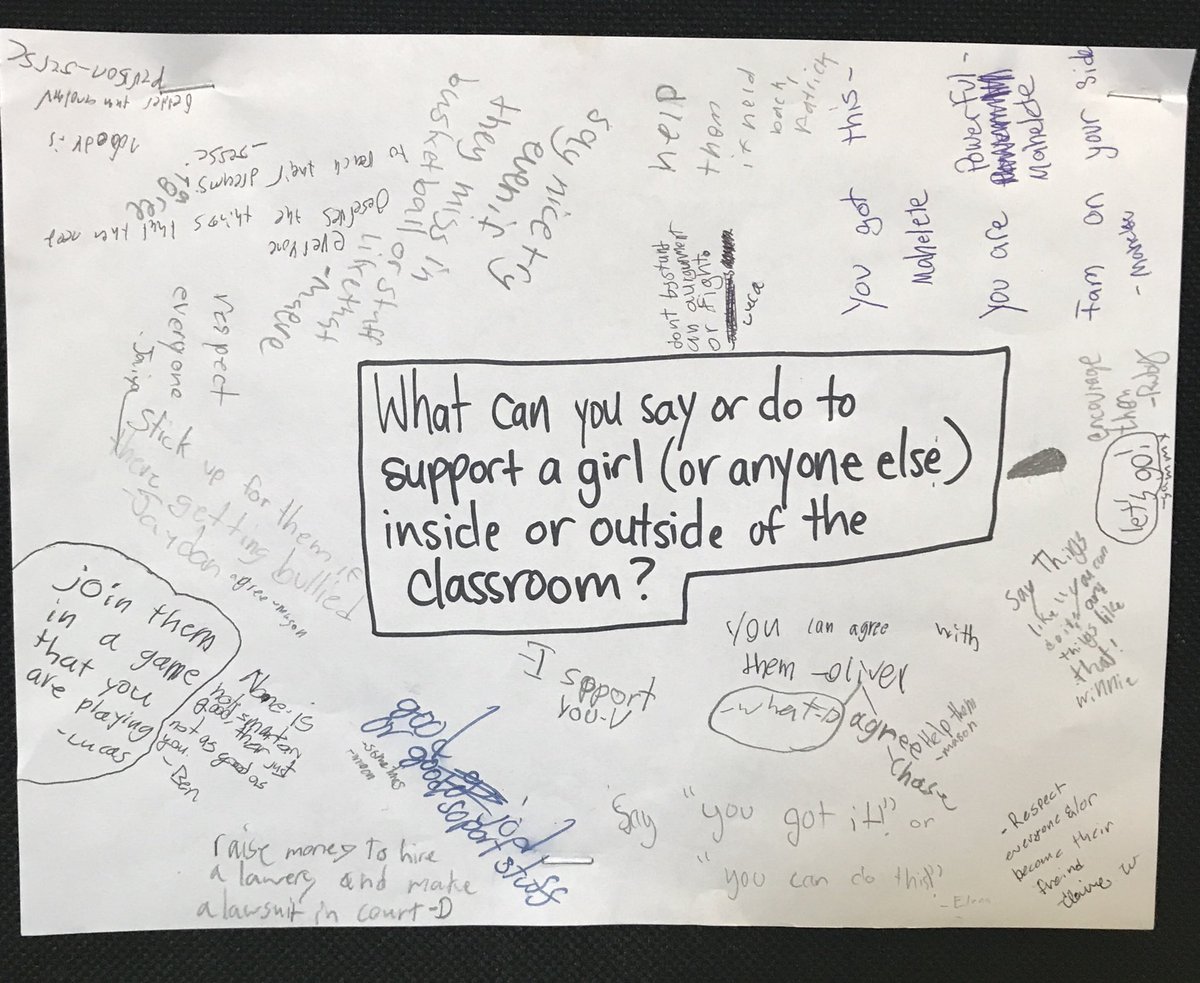 What can you say or do to
support a girl (or anyone else)
inside or outside of the
classroom?
nobody is
better then another
person -Jessc
everyone
deserves the things that they need
to reach their dreams
-Jessc
agree
say nice try
even if
they miss in
busketball or stuff
like that
-Maeve
help
them
if neid
back,
Patrick
dont bystunt
an aurgument
or fight
-Luca
You got this-
Mahelete
You are Powerful-
Mahelete
I am on your side
-Mahelete
encourage
them
-Ruby
let's go!
-sammy
respect
everyone
Jaiya
Stick up for them if
there getting bullied
-Jaydan
agree -mason
join them
in a game
that you
are playing
-Lucas
None is
not as good as
you
-Ben
I spport
YOU-V
good job!
or good soport stuff
raise money to hire
a lawery and make
a lawsuit in court-D
you can agree with
them -oliver
-what-D
agree
Chase
Help them
-mason
Say Things
like you can
do it and
things like
that!
winnie
Say "you got it!" or
"you can do this!"
-Respect
everyone &/or
become their
freind